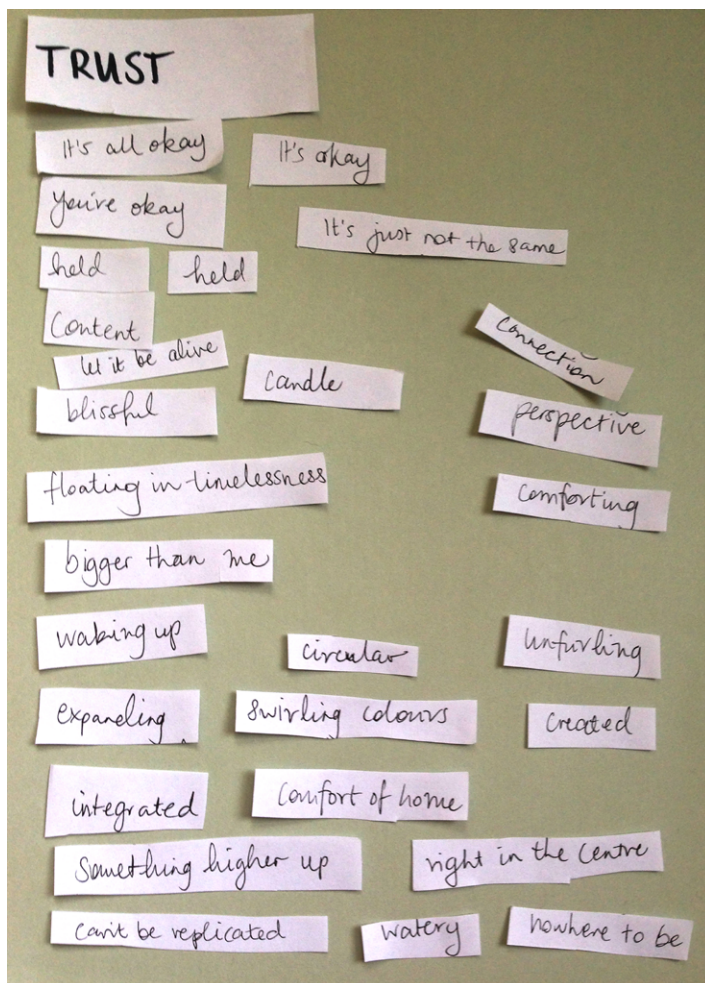 TRUST
It's all okay
It's okay
You're okay
It's just not the same
held
held
Content
let it be alive
candle
connection
blissful
perspective
floating in timelessness
comforting
bigger than me
waking up
circular
unfurling
expanding
swirling colours
created
integrated
comfort of home
Something higher up
right in the centre
can't be replicated
watery
nowhere to be